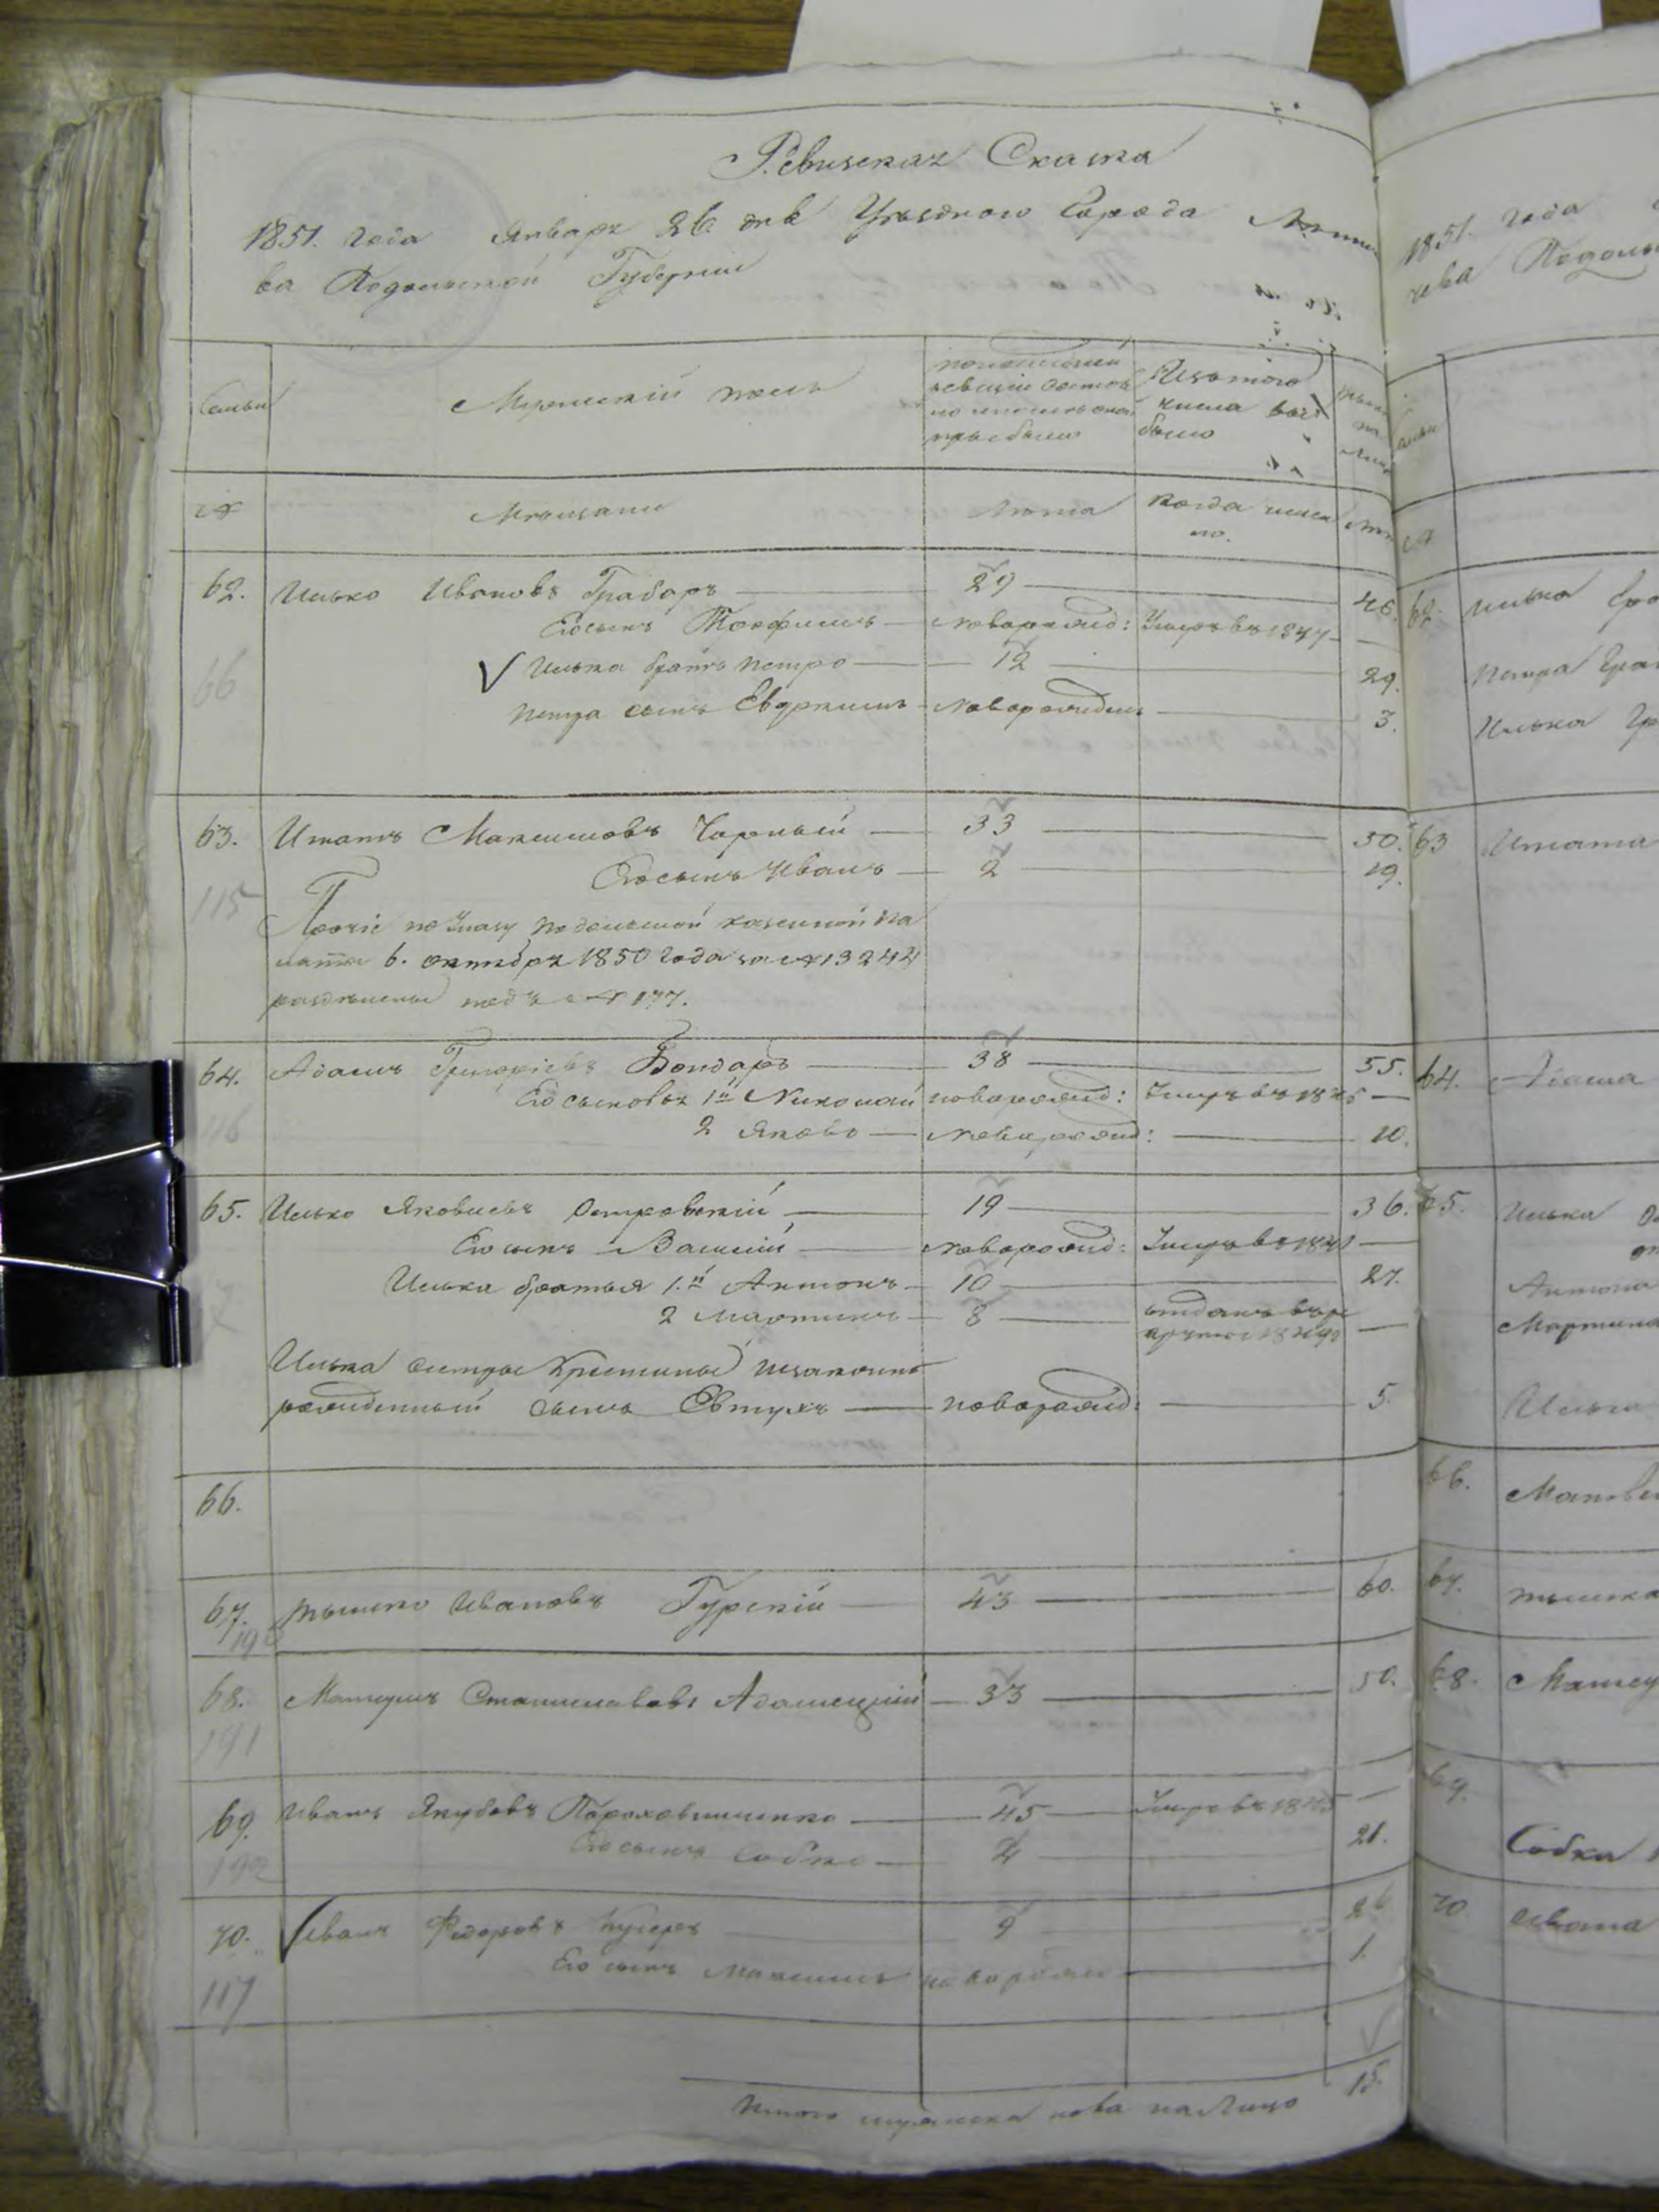 Ревизская Сказка
1851. года Января 26. дня Уѣзднаго Города
ва Подольской Губерніи
Семьи
Мужескій полъ
по последней ревизіи состояло и после оной прибыло
Изъ того числа выбыло
Нынѣ на лицо
№
Мѣщане
Лѣта
Когда именно.
Лѣта
62. Илько Ивановъ Грабаръ 29 46.
Его сынъ Теофилъ новорожд: Умеръ въ 1847
66
Илька братъ Петро 12 29.
Петра сынъ Евдокимъ новорожден 3.
63. Игнатъ Максимовъ Чорный 33 50.
Его сынъ Иванъ 2 19.
115
Прочіе по Указу Подольской казенной па
латы 6. октября 1850 года за № 13242
раздѣлены подъ № 177.
64. Адамъ Григоріевъ Бондаръ 38 55.
Его сыновья 1й Николай новорожд: Умеръ въ
2 Яковъ новорожд: 10.
65. Илько Яковлевъ Островскій 19 36.
Его сынъ Василій новорожд: Умеръ въ
Илька братья 1.й Антонъ 10 27.
2 Мартинъ 8 отданъ въ ре
круты
Илька сестры Кристины незаконно
рожденный сынъ Евтухъ новорожд: 5.
66.
67. Тышко Ивановъ Гурскій 43 60.
68. Матеушъ Станиславовъ Адамецкій 33 50.
191
69. Иванъ Якубовъ Пороховниченко 45 Умеръ въ 1845
Его сынъ Собко 4 21.
192
70. Иванъ Федоровъ Кучеръ 9 26
Его сынъ Максимъ новорожд 1.
117
Итого мужеска пола на лицо 15.
1851. года
чева Подоль
62. Илька Гра
Петра Гра
Илька Гр
63 Игната
64. Адама
65. Илька
Антона
Мартина
Илька
66. Матве
67. Тышка
68. Матеу
69.
Собка
70 Ивана